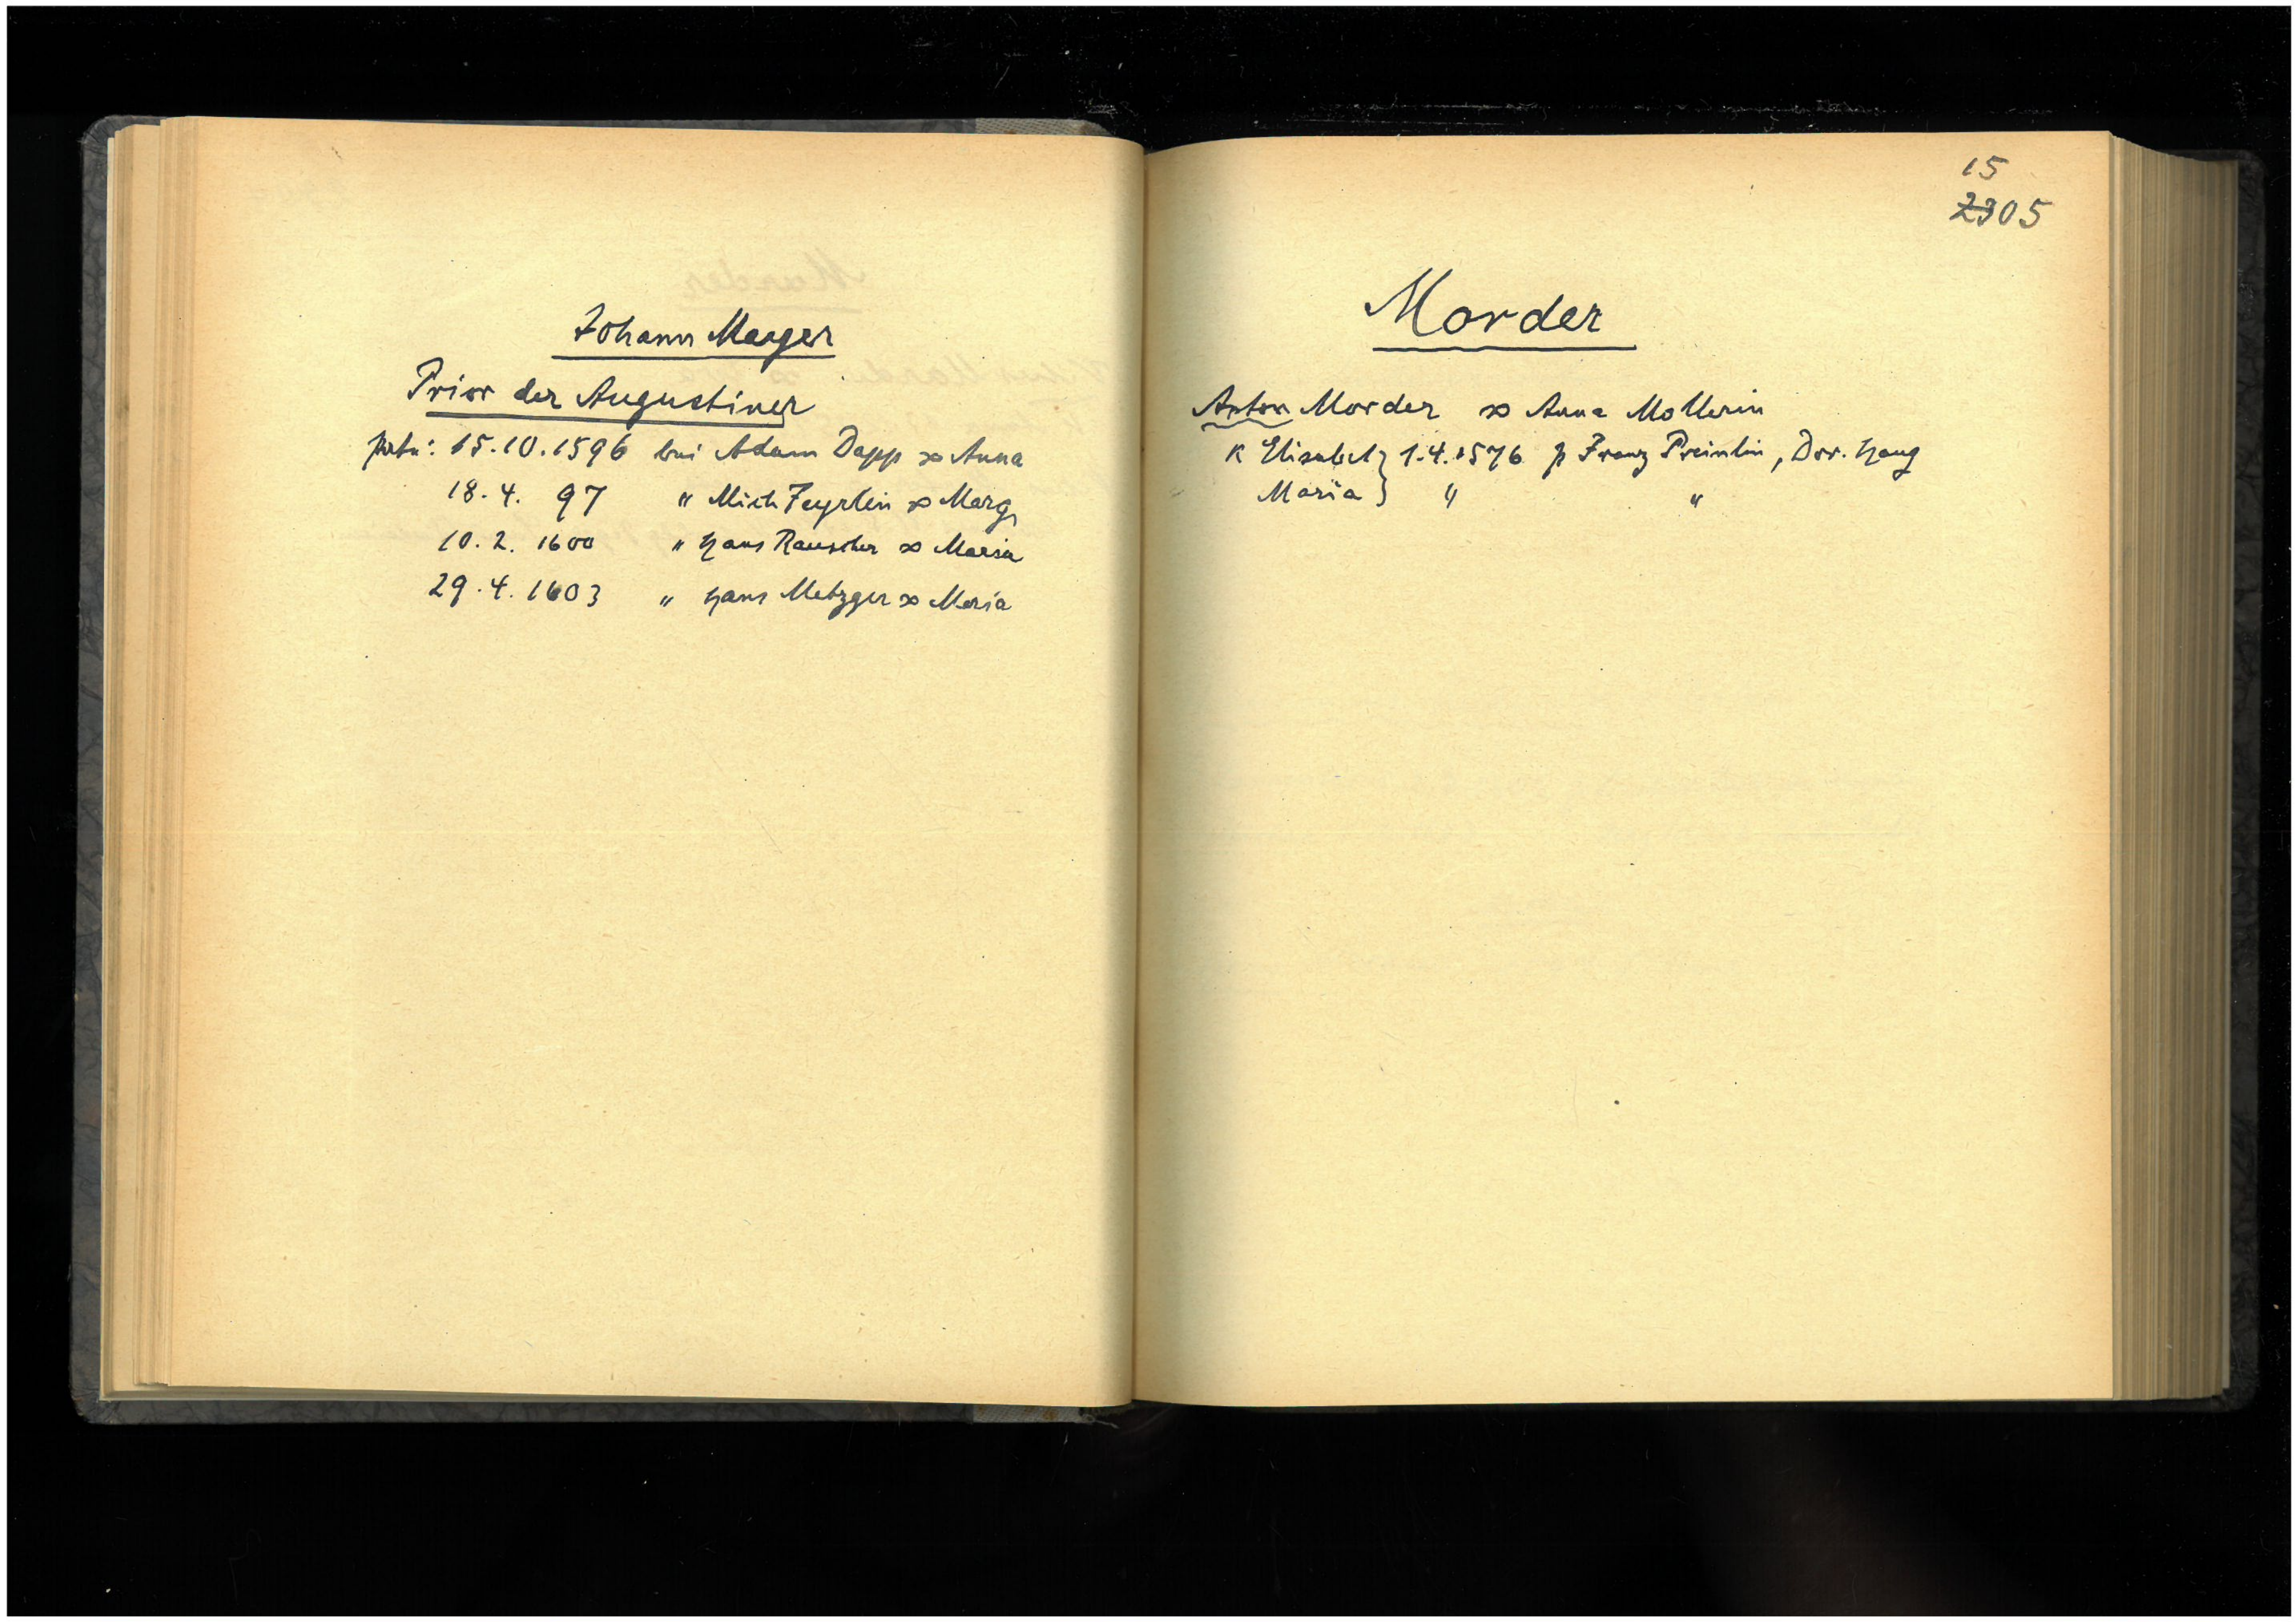 Johann Mayer
Prior der Augustiner
patr: 15.10.1596 bei Adam Dapp ∞ Anna
18.4. 97 " Mich Feyrlin ∞ Marg
10.2. 1600 " Hans Rauscher ∞ Maria
29.4.1603 " Hans Metzger ∞ Maria
15
2305
Morder
Anton Morder ∞ Anna Mollerin
K Elisabet } 1.4.1576 p Franz Preinlin, Dor. Haug
Maria } " "